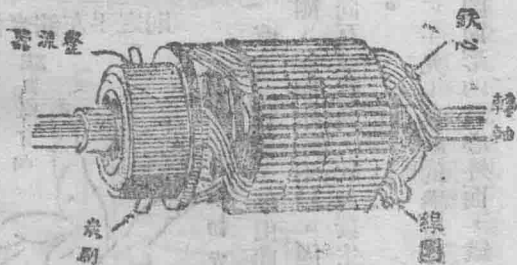 整流器
鉄心
轉軸
炭刷
線圈